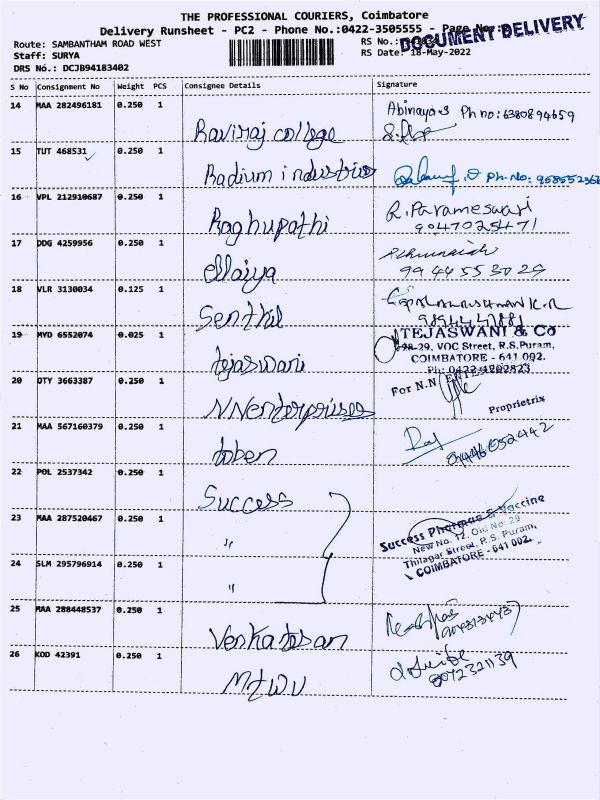 THE PROFESSIONAL COURIERS, Coimbatore
Delivery Runsheet - PC2 - Phone No.:0422-3505555 - Page No.:
DOCUMENT DELIVERY
Route: SAMBANTHAM ROAD WEST
RS No.:
Staff: SURYA
RS Date: 18-May-2022
DRS No.: DCJB94183402
S No Consignment No Weight PCS Consignee Details Signature
14 MAA 282496181 0.250 1
Raviraj college
Abinaya.S Ph no: 6380894659
15 TUT 468531 0.250 1
Radium industries
Ph.No:
16 VPL 212910687 0.250 1
Raghupathi
R.Parameswari
9047025471
17 DDG 4259956 0.250 1
ellaiya
99 44 55 30 29
18 VLR 3130034 0.125 1
Senthil
19 MYD 6552074 0.025 1
tejaswari
TEJASWANI & Co
28-29, VOC Street, R.S.Puram,
COIMBATORE - 641 002.
Ph: 0422-4202823
20 OTY 3663387 0.250 1
NNEnterprises
For N.N ENTE
Proprietrix
21 MAA 567160379 0.250 1
toben
Raj
22 POL 2537342 0.250 1
Success
23 MAA 287520467 0.250 1
"
Success Pharmas & Vaccine
New No. 12, Old No: 29
Thilagar Street, R.S. Puram,
COIMBATORE - 641 002.
24 SLM 295796914 0.250 1
"
25 MAA 288448537 0.250 1
Venkatesan
26 KOD 42391 0.250 1
MTWU